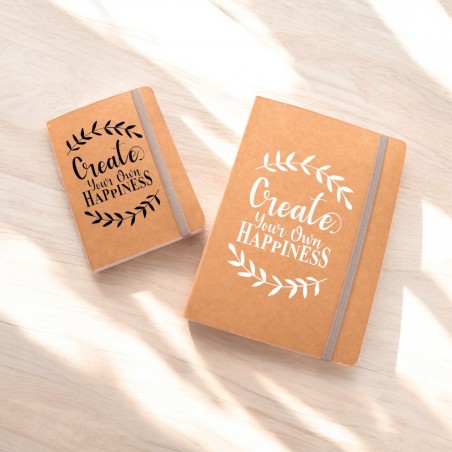 Create
Your Own
HAPPINESS
Create
Your Own
HAPPINESS